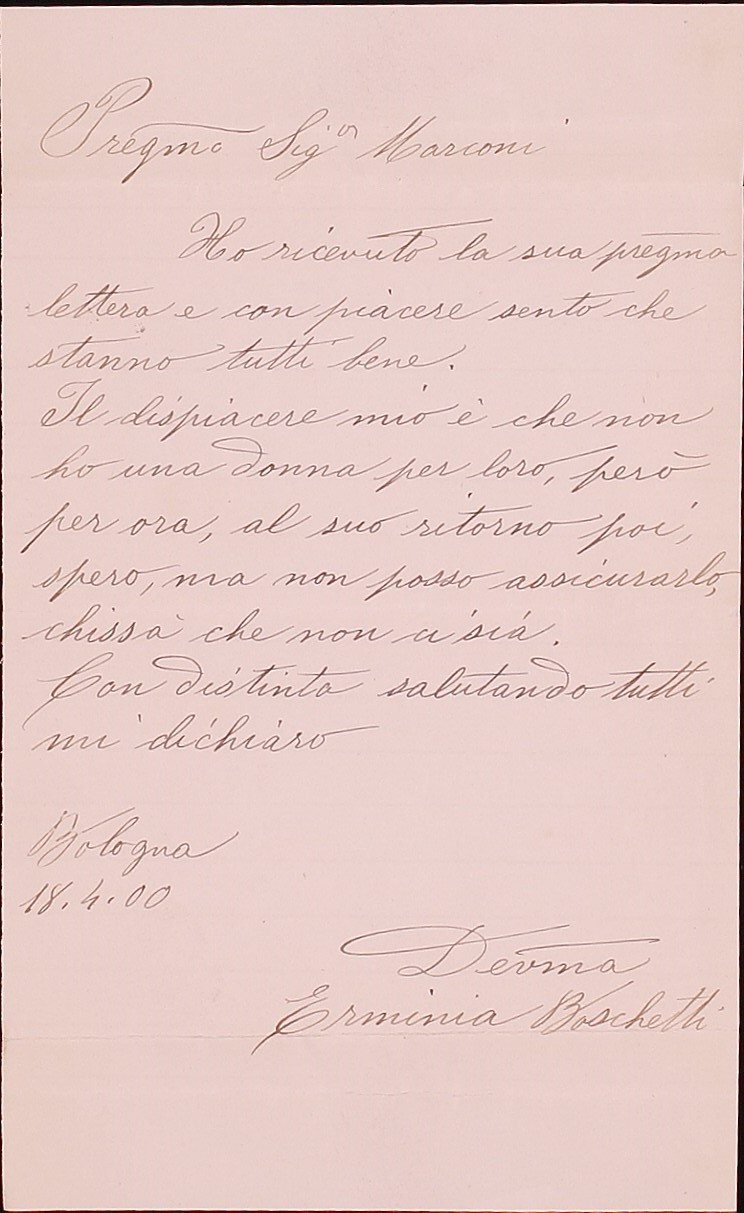 Pregma Sigr Marconi
Ho ricevuto la sua pregma
lettera e con piacere sento che
stanno tutti bene.
Il dispiacere mio è che non
ho una donna per loro, però
per ora, al suo ritorno poi,
spero, ma non posso assicurarlo,
chissà che non ci sia.
Con distinta salutando tutti
mi dichiaro
Bologna
18.4.00
Devma
Erminia Boschetti